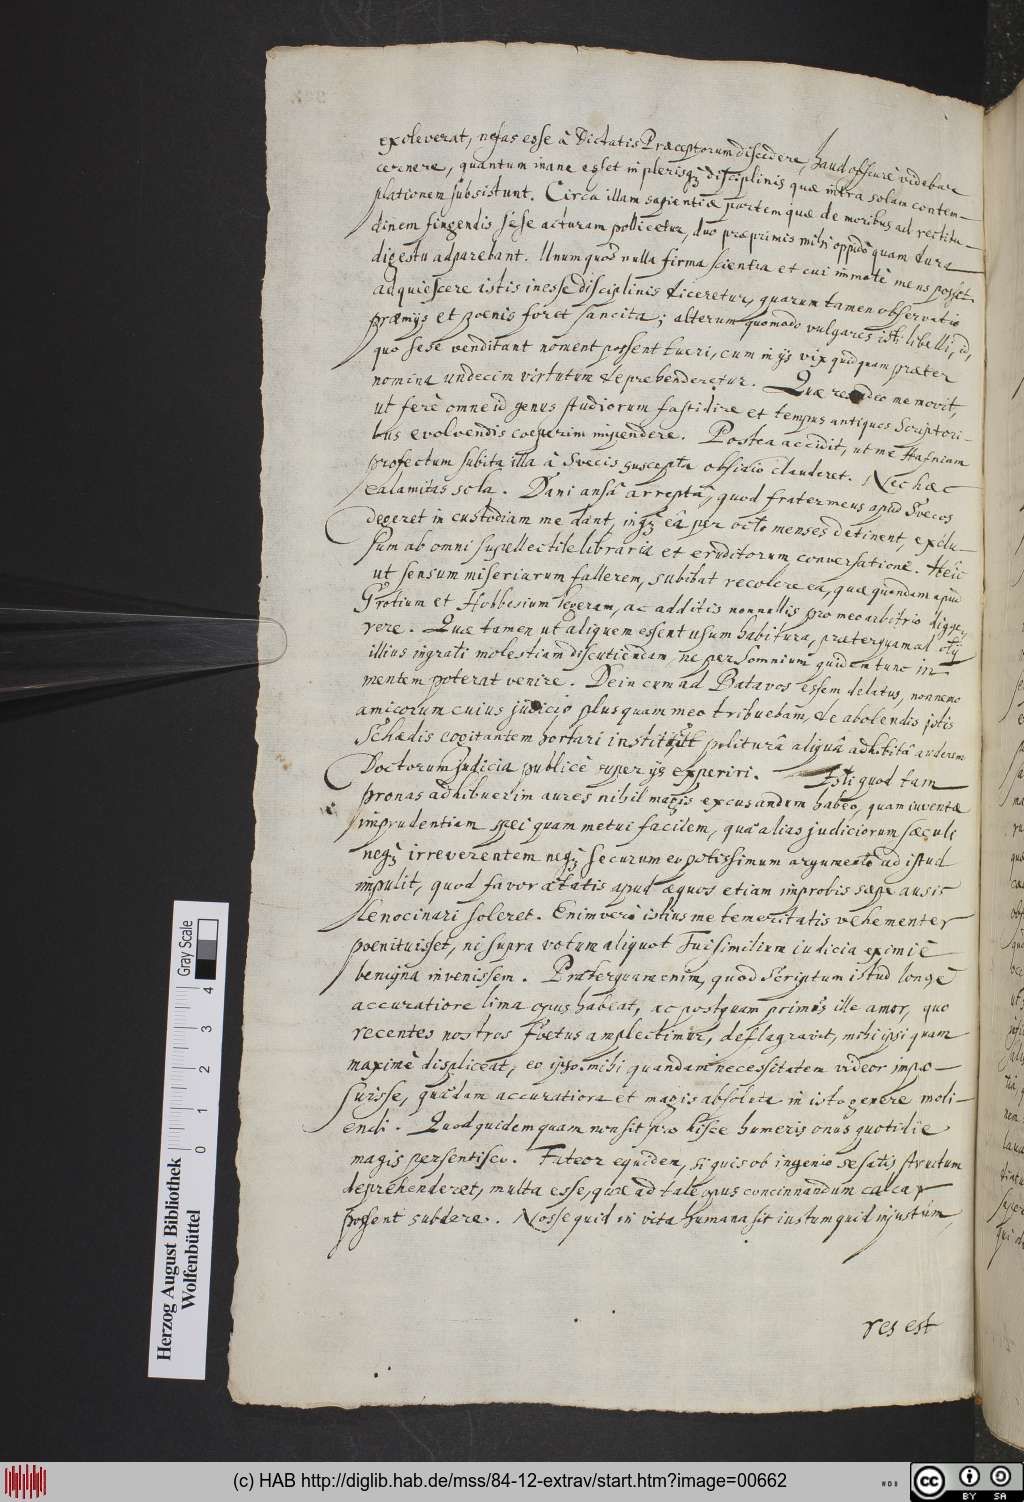 exoleverat, nefas esse â Dictatis Præceptorum discedere, haud obscure videbar
cernere, quantum inane esset in plerisq; disciplinis quæ intra solam contem-
plationem subsistunt. Circa illam sapientiæ partem quæ de moribus ad rectitu-
dinem fingendis sese acturam pollicetur, duo præprimis mihi oppidò quam dura
digestu adparebant. Unum quod nulla firma scientia et cui immotè mens posset
adquiescere istis inesse disciplinis diceretur, quarum tamen observatio
præmijs et poenis foret sancita; alterum quomodo vulgares isti libelli, id,
quo sese venditant nomen possent tueri, cum in ijs vix quidquam præter
nomina undecim virtutum deprehenderetur. Quæ res adeo me movit,
ut ferè omne id genus studiorum fastidire et tempus antiquos scriptori-
bus evolvendis coeperim impendere. Postea accidit, ut me Hafniam
profectum subita illa â Svecis suscepta obsidio clauderet. Nec hæc
calamitas sola. Dani ansâ arreptâ, quod frater meus apud Svecos
degeret in custodiam me dant, inq; eâ per octo menses detinent, exclu-
sum ab omni supellectile libraria et eruditorum conversatione. Heic
ut sensum miseriarum fallerem, subibat recolere ea, quæ quondam apud
Grotium et Hobbesium legeram, ac additis nonnullis pro meo arbitrio digge-
rere. Quæ tamen ut aliquem essent usum habitura, præterquam ad otij
illius ingrati molestiam discutiendam, ne per somnium quidem tunc in
mentem poterat venire. Dein cum ad Batavos essem delatus, nonnemo
amicorum cuius judicio plusquam meo tribuebam, de abolendis istis
schædis cogitantem hortari instituit politurâ aliquâ adhibitâ auderem
Doctorum judicia publicè super ijs experiri. Isti quod tam
pronas adhibuerim aures nihil magis excusandum habeo, quam iuventæ
imprudentiam spei quam metui facilem, quâ alias judiciorum sæculi
neq; irreverentem neq; securum eo potissimum argumento ad istud
impulit, quod favor ætatis apud æquos etiam improbis sæpe ausis
lenocinari soleret. Enimverò istius me temeritatis vehementer
poenituisset, ni supra votum aliquot Tui similium iudicia eximiè
benigna invenissem. Præterquam enim, quod scriptum istud longè
accuratiore lima opus habeat, ac postquam primus ille amor, quo
recentes nostros foetus amplectimur, deflagravit, mihi ipsi quam
maximè displiceat, eo ipso mihi quandam necessitatem videor impo-
suisse, quædam accuratiora et magis absoluta in isto genere moli-
endi. Quod quidem quam non sit pro hisce humeris onus quotidie
magis persentisco. Fateor equidem, si quis ob ingenio se satis structum
deprehenderet, multa esse, quæ ad tale opus concinnandum calcar
possent subdere. Nosse quid in vita humana sit iustum quid injustum,
res est
Herzog August Bibliothek
Wolfenbüttel
0 1 2 3 4
Gray Scale
(c) HAB http://diglib.hab.de/mss/84-12-extrav/start.htm?image=00662
cc BY SA